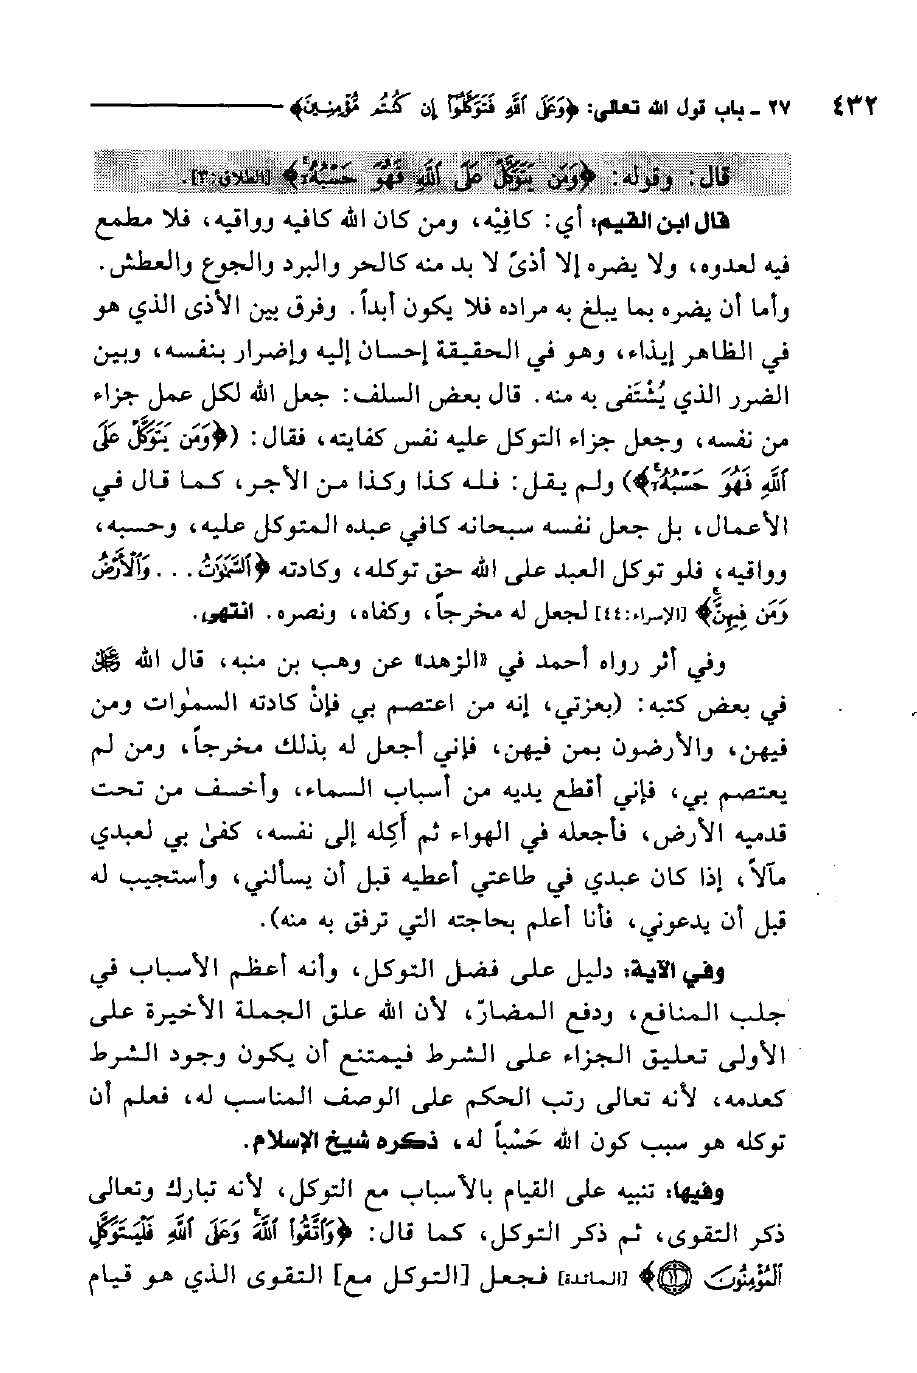 ٤٣٢ ٢٧ ـ باب قول الله تعالى: ﴿وَعَلَى ٱللَّهِ فَتَوَكَّلُوٓا۟ إِن كُنتُم مُّؤْمِنِينَ﴾
قال: وقوله: ﴿وَمَن يَتَوَكَّلْ عَلَى ٱللَّهِ فَهُوَ حَسْبُهُۥٓ﴾ [الطلاق:٣].
قال ابن القيم: أي: كافِيْه، ومن كان الله كافيه وواقيه، فلا مطمع
فيه لعدوه، ولا يضره إلا أذىً لا بد منه كالحر والبرد والجوع والعطش.
وأما أن يضره بما يبلغ به مراده فلا يكون أبداً. وفرق بين الأذى الذي هو
في الظاهر إيذاء، وهو في الحقيقة إحسان إليه وإضرار بنفسه، وبين
الضرر الذي يُشْتَفى به منه. قال بعض السلف: جعل الله لكل عمل جزاء
من نفسه، وجعل جزاء التوكل عليه نفس كفايته، فقال: (﴿وَمَن يَتَوَكَّلْ عَلَى
ٱللَّهِ فَهُوَ حَسْبُهُۥٓ﴾) ولم يقل: فله كذا وكذا من الأجر، كما قال في
الأعمال، بل جعل نفسه سبحانه كافي عبده المتوكل عليه، وحسبه،
وواقيه، فلو توكل العبد على الله حق توكله، وكادته ﴿ٱلسَّمَٰوَٰتُ ... وَٱلْأَرْضُ
وَمَن فِيهِنَّ﴾ [الإسراء:٤٤] لجعل له مخرجاً، وكفاه، ونصره. انتهى.
وفي أثر رواه أحمد في «الزهد» عن وهب بن منبه، قال الله ﷻ
في بعض كتبه: (بعزتي، إنه من اعتصم بي فإنْ كادته السمٰوات ومن
فيهن، والأرضون بمن فيهن، فإني أجعل له بذلك مخرجاً، ومن لم
يعتصم بي، فإني أقطع يديه من أسباب السماء، وأخسف من تحت
قدميه الأرض، فأجعله في الهواء ثم أَكِله إلى نفسه، كفىٰ بي لعبدي
مآلاً، إذا كان عبدي في طاعتي أعطيه قبل أن يسألني، وأستجيب له
قبل أن يدعوني، فأنا أعلم بحاجته التي ترفق به منه).
وفي الآية: دليل على فضل التوكل، وأنه أعظم الأسباب في
جلب المنافع، ودفع المضارّ، لأن الله علق الجملة الأخيرة على
الأولى تعليق الجزاء على الشرط فيمتنع أن يكون وجود الشرط
كعدمه، لأنه تعالى رتب الحكم على الوصف المناسب له، فعلم أن
توكله هو سبب كون الله حَسْباً له، ذكره شيخ الإسلام.
وفيها: تنبيه على القيام بالأسباب مع التوكل، لأنه تبارك وتعالى
ذكر التقوى، ثم ذكر التوكل، كما قال: ﴿وَٱتَّقُوا۟ ٱللَّهَ وَعَلَى ٱللَّهِ فَلْيَتَوَكَّلِ
ٱلْمُؤْمِنُونَ ١١﴾ [المائدة] فجعل [التوكل مع] التقوى الذي هو قيام